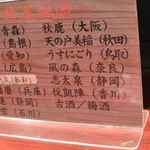 青森)　秋鹿(大阪)
島根)　天の戸美稲(秋田)
愛知)　うすにごり(鳥取)
広島)　風の森(奈良)
志太泉(静岡)
(兵庫)　悦凱陣(香川)
(静岡)　古酒/梅酒
(石川)